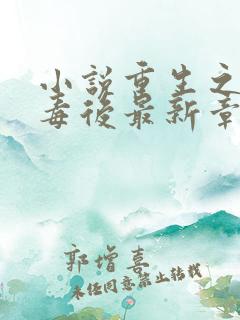 小說重生之
毒後最新章
郭增喜
未经同意禁止转载